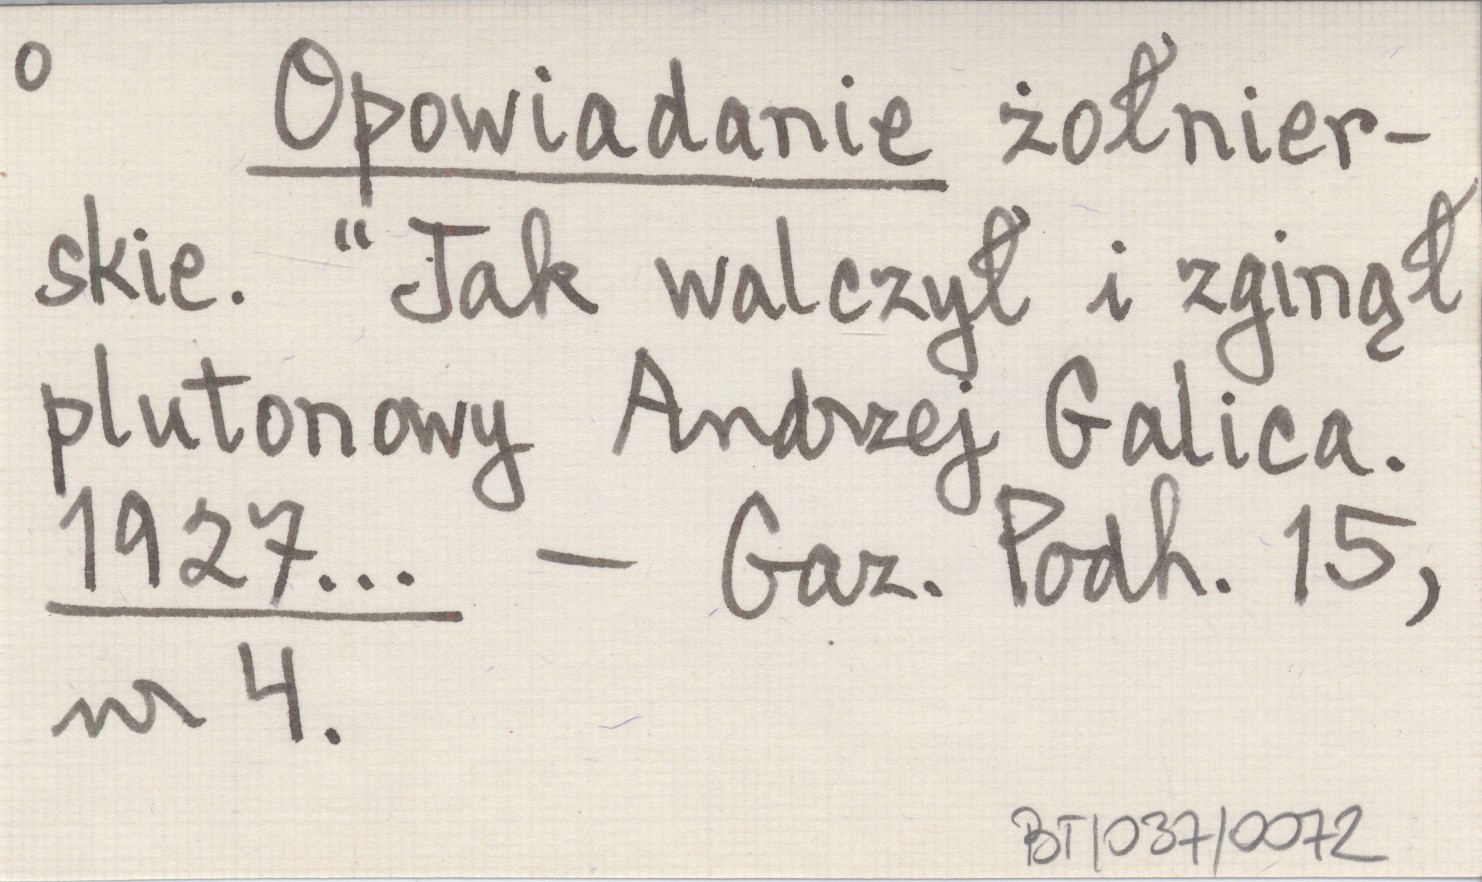 o Opowiadanie żołnier-
skie. "Jak walczył i zginął
plutonowy Andrzej Galica.
1927... - Gaz. Podh. 15,
nr 4.
BT/037/0072